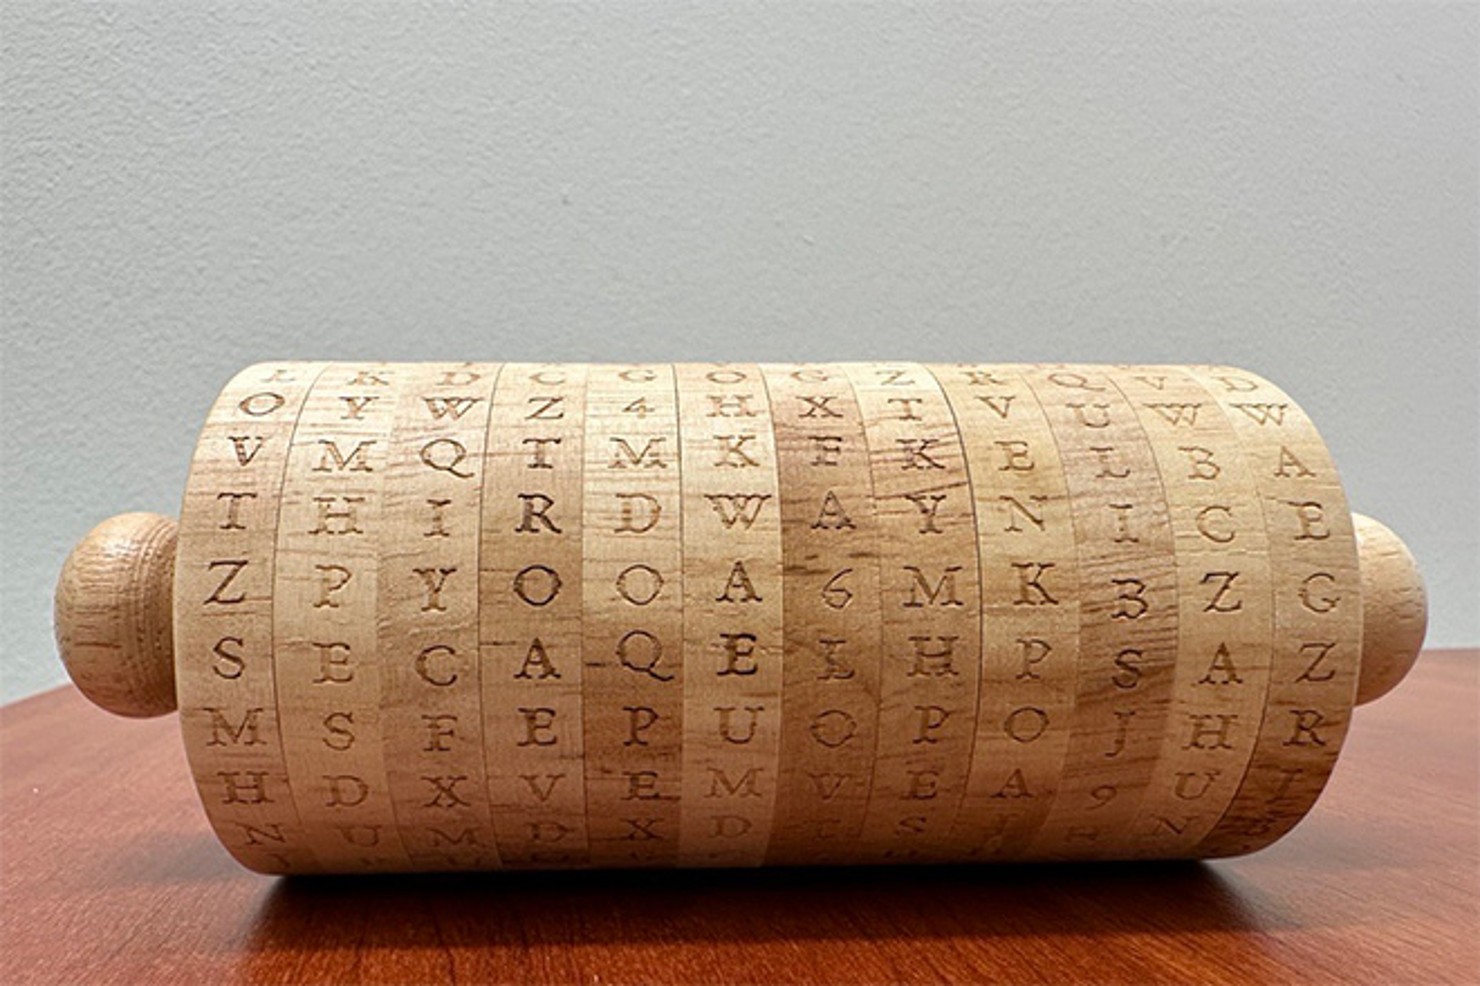 L R D C G O G Z R Q V D
O Y W Z 4 H X T V U W W
V M Q T M K F K E L B A
T H I R D W A Y N I C E
Z P Y O O A 6 M K B Z G
S E C A Q E L H P S A Z
M S F E P U O P O J H R
H D X V E M V E A 9 U I
N U M D X D S H N